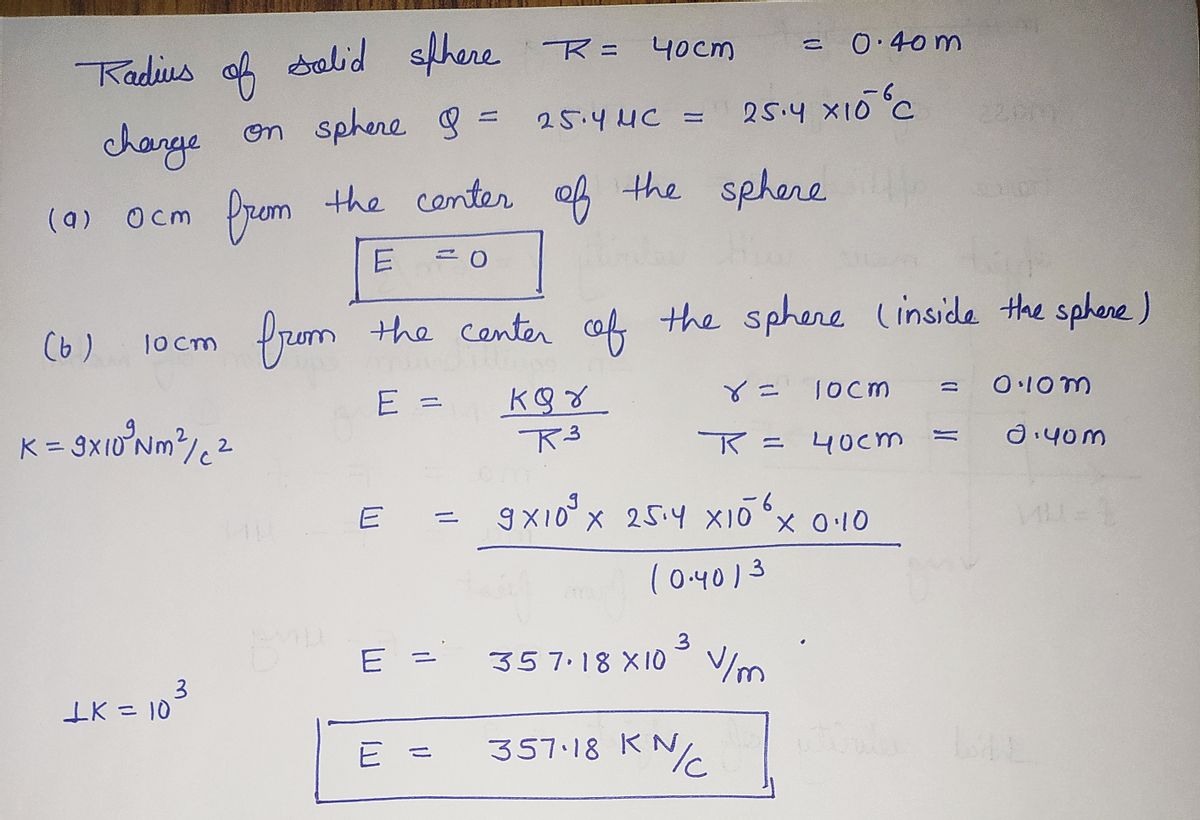 Radius of solid sphere R = 40cm = 0.40m
charge on sphere Q = 25.4 μC = 25.4 ×10⁻⁶C
(a) 0cm from the center of the sphere
E = 0
(b) 10cm from the center of the sphere (inside the sphere)
E = KQr/R³ r = 10cm = 0.10m
K = 9×10⁹Nm²/c² R = 40cm = 0.40m
E = 9×10⁹ × 25.4 ×10⁻⁶ × 0.10
(0.40)³
E = 357.18 ×10³ V/m
1K = 10³
E = 357.18 KN/C